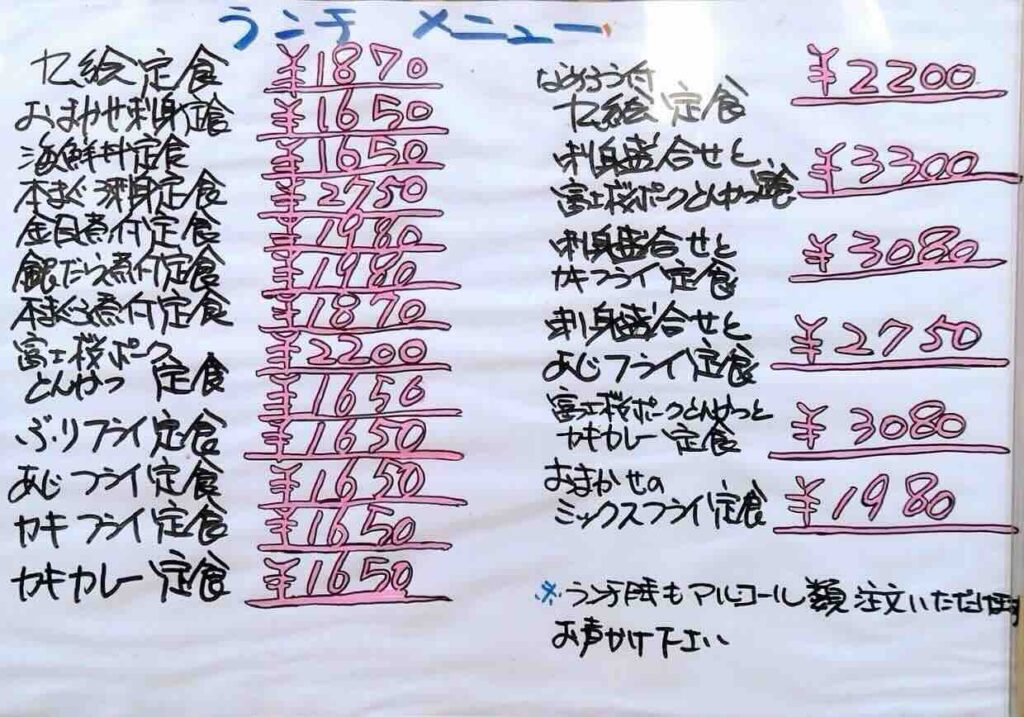 ランチ メニュー
七絵定食 ¥1870
おまかせ刺身定食 ¥1650
海鮮丼定食 ¥1650
本まぐ刺身定食 ¥2750
金目煮付定食 ¥1980
銀だら煮付定食 ¥1980
本まぐろ煮付定食 ¥1870
富士桜ポーク ¥2200
とんかつ 定食 ¥1650
ぶりフライ定食 ¥1650
あじフライ定食 ¥1650
カキフライ定食 ¥1650
カキカレー定食 ¥1650
なめろう付 ¥2200
七絵定食
刺身盛合せと ¥3300
富士桜ポークとんかつ定食
刺身盛合せと ¥3080
カキフライ定食
刺身盛合せと ¥2750
あじフライ定食
富士桜ポークとんかつと ¥3080
カキカレー定食
おまかせの ¥1980
ミックスフライ定食
※ランチ時もアルコール類注文いただけます
お声かけ下さい